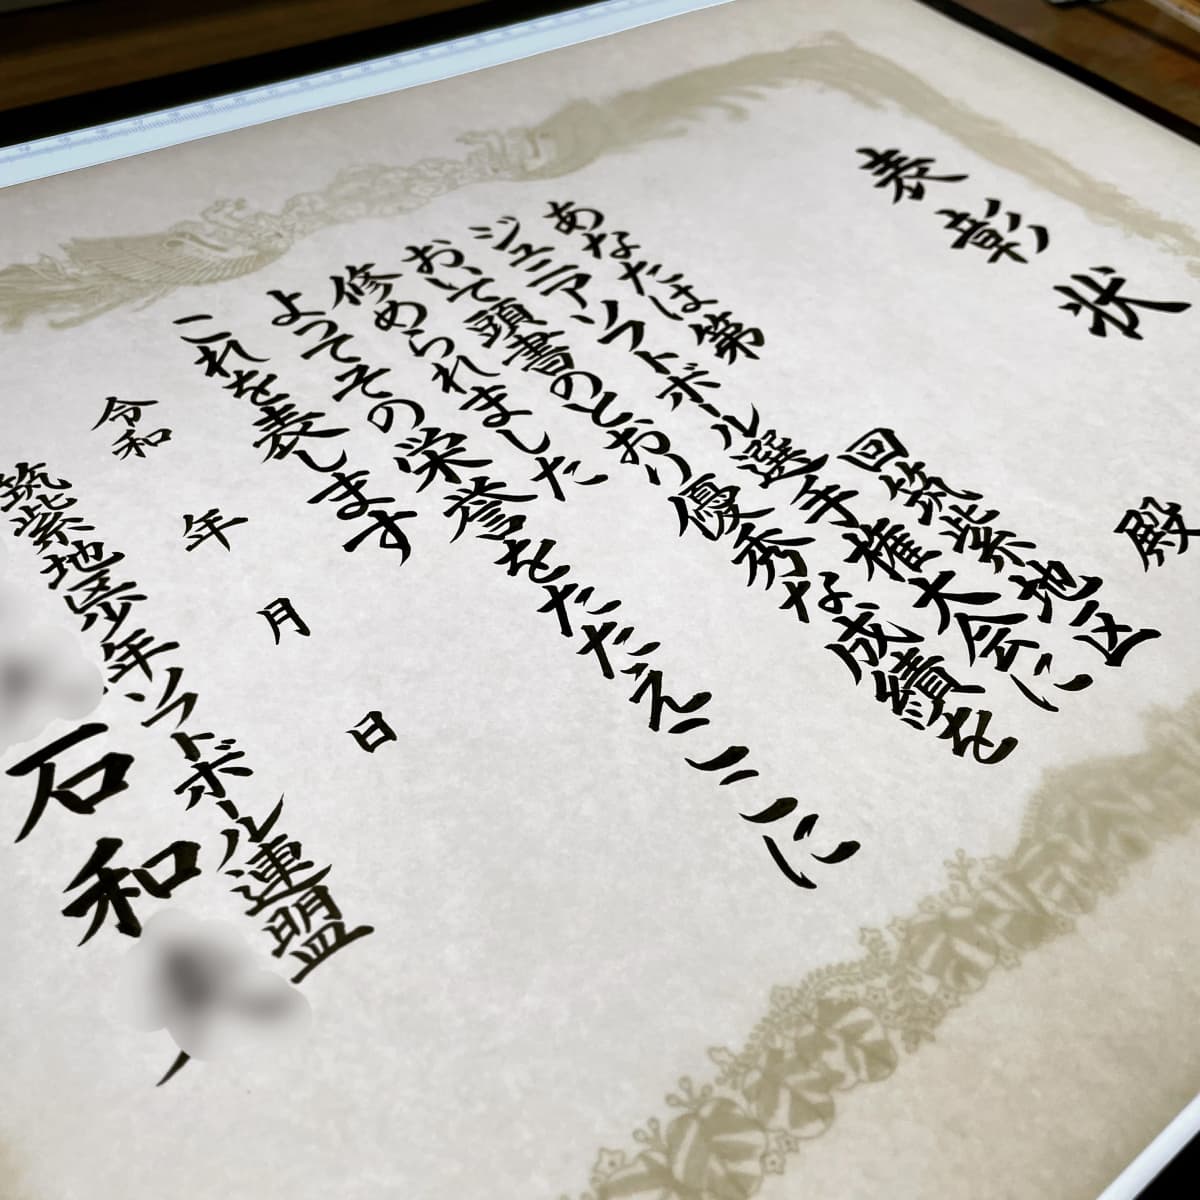 表彰状
殿
あなたは第 回筑紫地区
ジュニアソフトボール選手権大会に
おいて頭書のとおり優秀な成績を
修められました
よってその栄誉をたたえここに
これを表します
令和 年 月 日
筑紫地区少年ソフトボール連盟
石和